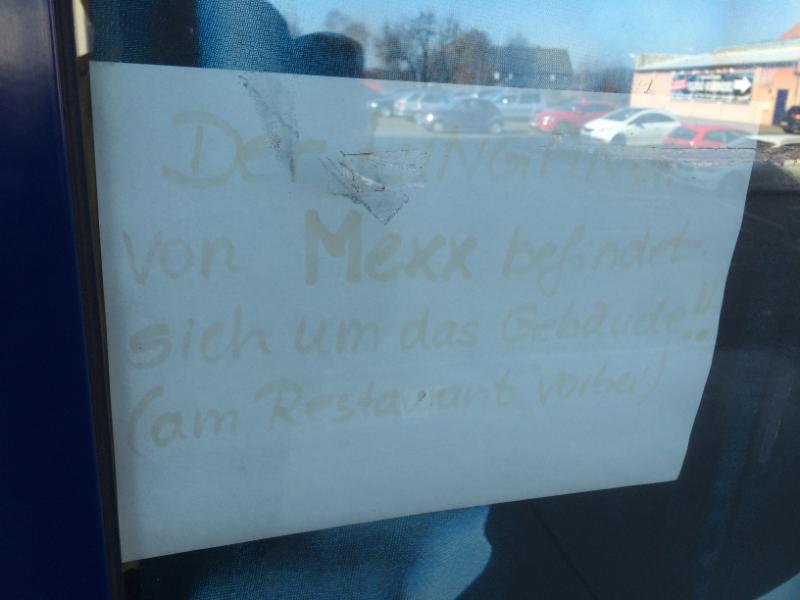 Der EINGANG
von Mexx befindet
sich um das Gebäude!!
(am Restaurant vorbei)